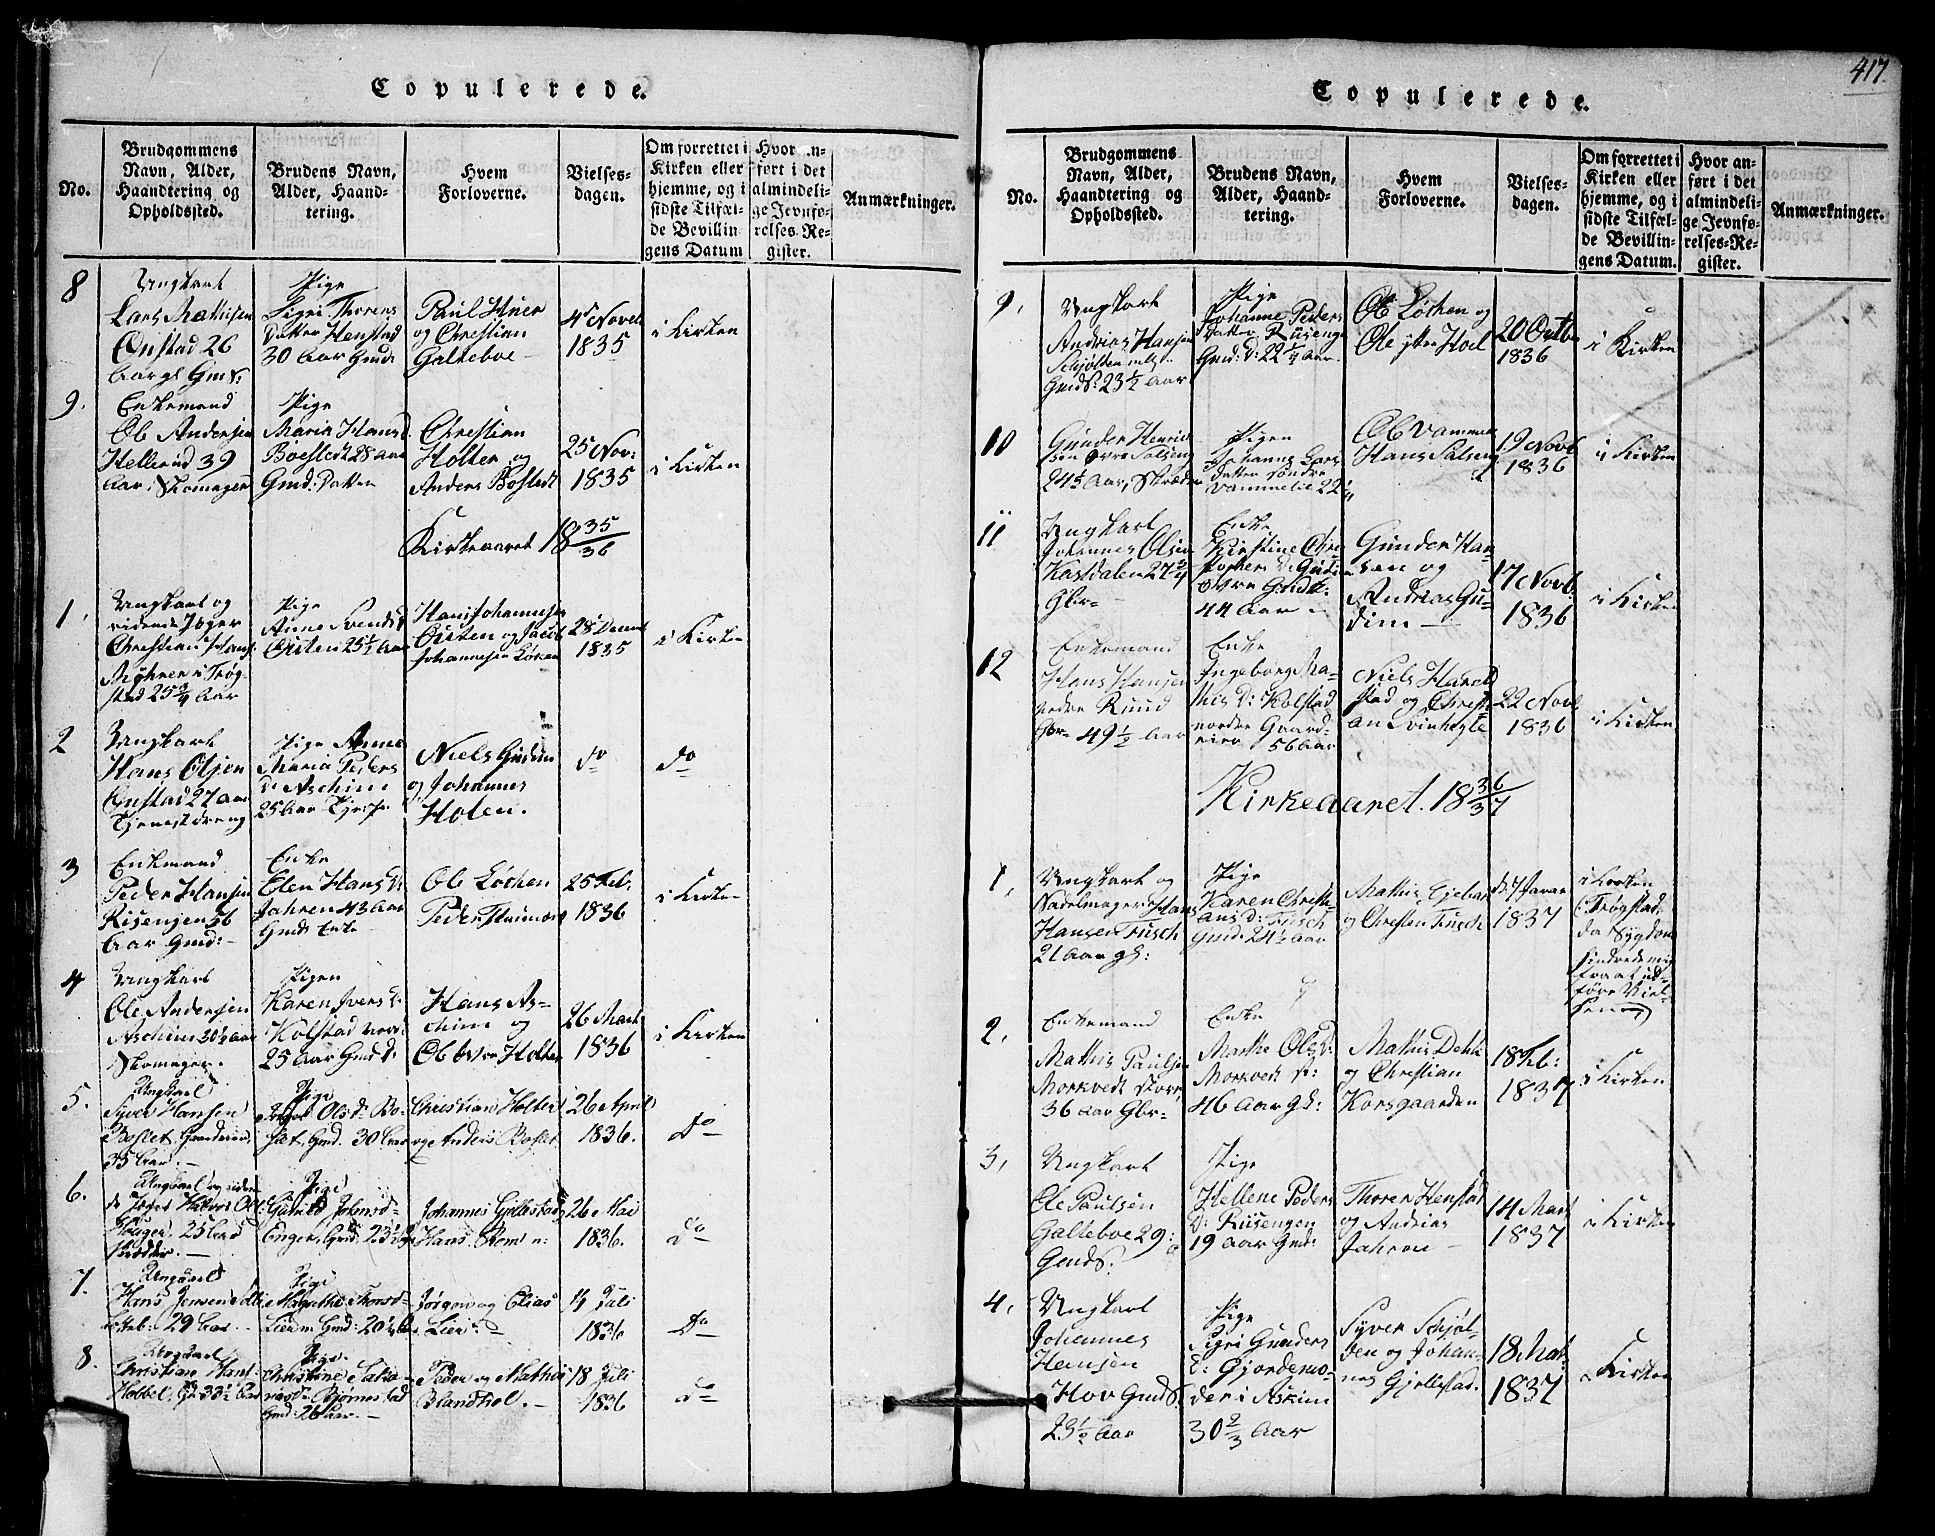 Copulerede.
No.
Brudgommens
Navn, Alder,
Haandtering og
Opholdssted.
Brudens Navn,
Alder, Haand-
tering.
Hvem
Forloverne.
Vielses-
dagen.
Om forrettet i
Kirken eller
hjemme, og i
sidste Tilfæl-
de Bevillin-
gens Datum
Hvor an-
ført i det
almindeli-
ge Jevnfø-
relses-Re-
gister.
Anmærkninger.
8
Ungkarl
Lars Mathisen
Onstad 26
Aar
Pige
Sigri Thorens
Datter Henstad
30 Aar Gmd:
Paul Huer
og Christian
Galteboe
4de Novel
1835
i Kirken
9.
Enkemand
Ole Andersen
Hellerud 39
Aar, Skomager
Pige
Maria Hansd
Boestedt 28 aar
Gmd: Datter
Christian
Holter og
Anders Bostedt
25 Nov:
1835
i Kirken
Kirkeaaret 18 35/36
1.
Ungkarl og
ridende Jæger
Christian Hans
Myhren i Trøg-
stad 25 3/4 Aar
Pige
Anne Svends
Østen 25 1/2 Aar
Hans Johannesen
Østen og Jacob
Johannesen Løken
28 Decem
1835
i Kirken
2
Ungkarl
Hans Olsen
Onstad 27 aar
Tjenestdreng
Pige Anne
Maria Peders
D: Aschim
25 Aar
Niels Gudim
og Johannes
Holen.
do
do
3
Enkemand
Peder Hansen
Risengen 56
Aar Gmd:
Enke
Elen Hans D:
Jahren 43 Aar
Gmds Enke
Ole Løchen
Peder
25 Feb:
1836
i Kirken
4
Ungkarl
Ole Andersen
Aschim 30 1/2 Aar
Skomager.
Pigen
Karen Ivers D:
Kolstad nord:
25 Aar Gmd D:
Hans As-
chim og
Ole østre Holter
26 Marts
1836
i Kirken
5.
Ungkarl
Syver Hansen
Boslet, Gaardeier,
35 Aar.
Pige
Olsd: Bo-
slet, Gmd. 30 Aar
Christian Holter
og Anders Boslet
26 April
1836.
Do
6.
Ungkarl og riden-
de Jæger Halvor Ols
Hougen, 25 Aar
Skrædder.
Pige
Johnsd
Enger, Gmd. 23 1/2
Johannes Gjellestad
Hans
26 Mai
1836.
Do
7.
Ungkarl
Hans Jensen
29 Aar.
Pige
Magrethe Thorsd
Lier Gmd: 20 1/2
Jørgen og Elias
Lier.
14 Juli
1836
Do
8.
Ungkarl
Christian Hans
Hobbel, 33 1/2 Aar
Pige.
Christine
Bjørnestad
Gmd: 26 Aar.
Peder og Mathis
Brandhol.
18 Juli
1836
do
417
Copulerede.
No.
Brudgommens
Navn, Alder,
Haandtering og
Opholdssted.
Brudens Navn,
Alder, Haand-
tering.
Hvem
Forloverne.
Vielses-
dagen.
Om forrettet i
Kirken eller
hjemme, og i
sidste Tilfæl-
de Bevillin-
gens Datum.
Hvor an-
ført i det
almindeli-
ge Jevnfø-
relses-Re-
gister.
Anmærkninger.
9.
Ungkarl
Andrias Hansen
Schjolten
Gmds: 23 1/2 Aar
Pige
Johanne Peders
Datter Risenge
Gmd: D: 22 1/4 Aar
Ole Løchen og
Ole Hoel
20 Octbr
1836
i Kirken
10
Gunder Henric
sen øvre Salseng
24 1/2 Aar, Skrædder
Pigen
Johanne Lars
Datter søndre
Vammelie 22 1/4
Ole Vammen
Hans Salseng
19 Novb
1836
i Kirken
11
Ungkarl
Johannes Olsen
Kastdalen 27 3/4
Gbr
Enke
Kirstine Chri
stophers D: Gudim
østre
44 Aar
Gunder Han-
sen og
Andrias Gu-
dim
17 Novb.
1836
i Kirken
12
Enkemand
Hans Hansen
nedre Ruud
Gbr 49 1/2 Aar
Enke
Ingeborg Ma-
this D: Kolstad
nordre Gaard-
eier 56 Aar
Niels Harald
stad og Christi
an Svinhegle
22 Novb
1836
i Kirken
Kirkeaaret. 18 36/37
1.
Ungkarl og
Nadelmager Hans
Hansen Tusch
21 Aar gl:
Pige
Karen Christi-
ans D: Tusch
Gmd. 24 1/2 Aar
Mathis
og Christen Tusch
Januar
1837
i Kirken
i Trøgstad,
da Sygdom
hindrede mig
fra at ud-
føre Viel-
sen
2.
Enkemand
Mathis Paulsen
Morkvedt store,
36 Aar Gbr
Enke
Marthe Ols D:
Morkvedt st:
46 Aar gl:
Mathis Dehli
og Christian
Korsgaarden
18 Feb:
1837
i Kirken
3.
Ungkarl
Ole Paulsen
Galteboe 29
GmdS.
Pige
Hellene Peders
D: Riisengen
19 Aar Gmd:
Thorer Henstad
og Andrias
Jahren
14 Marts
1837
i Kirken
4.
Ungkarl
Johannes
Hansen
Hov GmdS.
23 1/2 Aar
Pige
Sigri Gunders
D: Gjordemo-
der i Askim
30 2/3 Aar
Syver Schjøl-
den og Johan-
nes Gjellestad.
18 Mai
1837
i Kirken